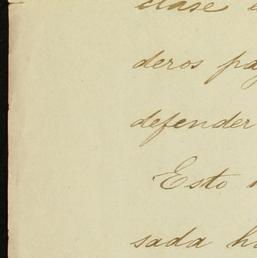 clase
deros
defender
Esto
sada